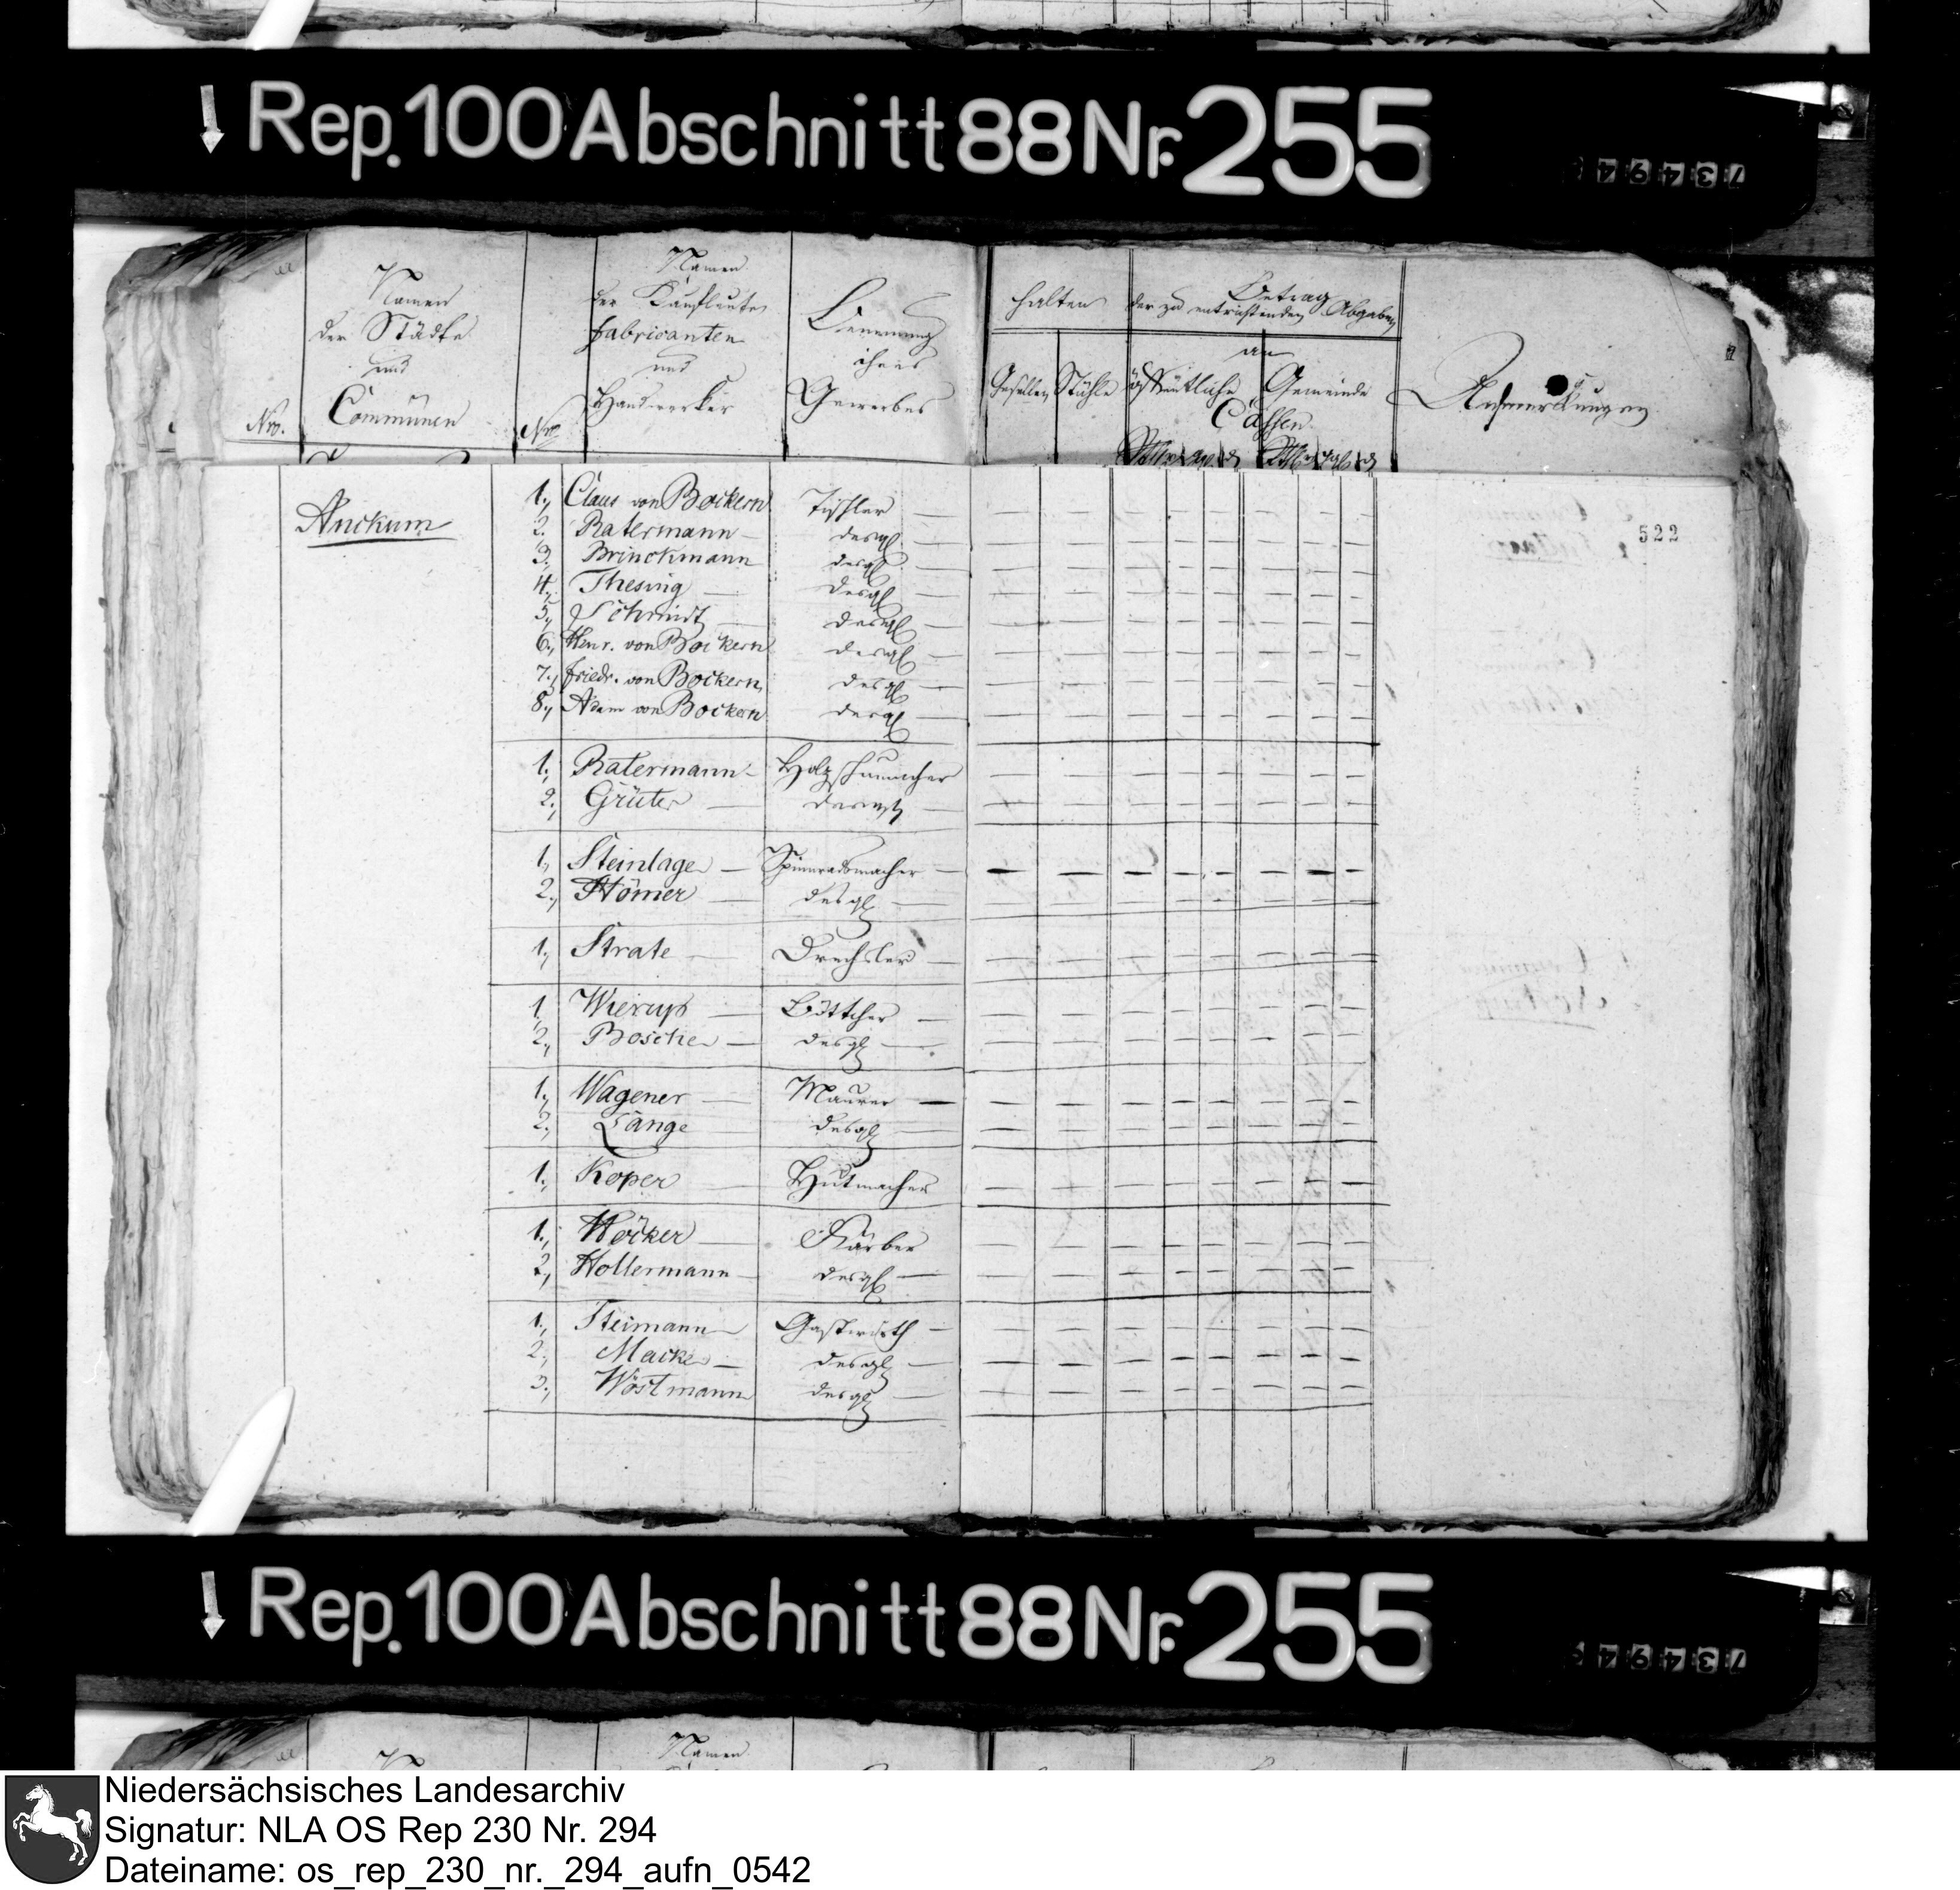 Rep. 100 Abschnitt 88 Nr. 255
73494
Nro.
Namen
der Städte
und
Communen
Nro
Namen
der Kaufleute
Fabricanten
und
Handwerker
Benennung
ihres
Gewerbes
halten
Gesellen
Stühle
Betrag
der zu entrichtenden Abgaben
an
öffentliche
Gemeinde
Cassen
Anmerkungen
522
Anckum
1., Claus von Bockern Tischler — — — — — — — — —
2. Ratermann — desgl. — — — — — — — — —
3., Brinckmann desgl. — — — — — — — — —
4., Thesing — desgl — — — — — — — — —
5., Schmidt — desgl — — — — — — — — —
6., Henr. von Bockern desgl — — — — — — — — —
7., Friedr. von Bockern, desgl — — — — — — — — —
8., Adam von Bockern desgl — — — — — — — — —
1., Ratermann — Holzschumacher — — — — — — — —
2., Grüter — — — — — — — — — —
1., Steinlage — Spinnradsmacher — — — — — — — — —
2., Hömer — desgl — — — — — — — — —
1., Strate — Drechsler — — — — — — — — —
1., Wierup — Böttcher — — — — — — — — —
2., Bosche — desgl — — — — — — — — —
1., Wagener — Maurer — — — — — — — — —
2., Lange desgl — — — — — — — — —
1., Koper — Hutmacher — — — — — — — —
1., Höcker — Färber — — — — — — — —
2., Hollermann — desgl — — — — — — — — —
1., Steimann — Gastwirth — — — — — — — — —
2., Macke — desgl — — — — — — — — —
3., Wöstmann desgl — — — — — — — — —
Rep. 100 Abschnitt 88 Nr. 255
73494
Namen
Niedersächsisches Landesarchiv
Signatur: NLA OS Rep 230 Nr. 294
Dateiname: os_rep_230_nr._294_aufn_0542